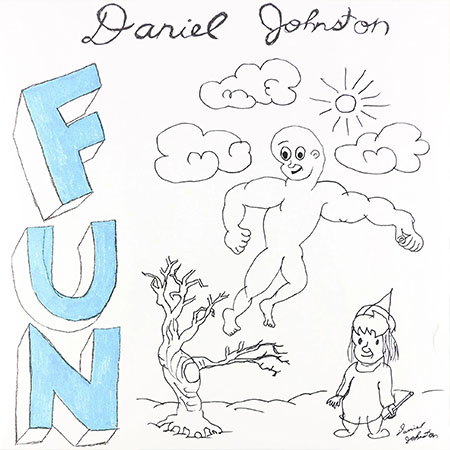 Daniel Johnston
FUN
Daniel
Johnston